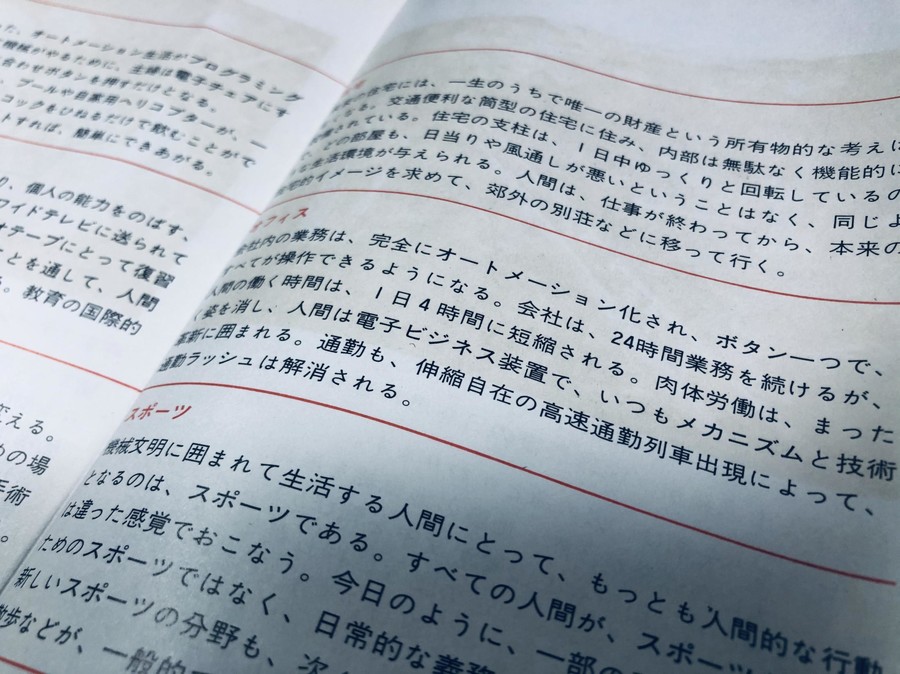 た、オートメーション生活がプログラミング
機械がやるために、主婦は電子チェアにす
合わせボタンを押すだけとなる。
プールや自家用ヘリコプターが、一
コックをひねるだけで飲むことがで
トすれば、簡単にできあがる。
り、個人の能力をのばす、
ワイドテレビに送られて
オテープにとって復習
ことを通して、人間
る。教育の国際的
変える。
めの場
手術
住宅には、一生のうちで唯一の財産という所有物的な考えは
る。交通便利な筒型の住宅に住み、内部は無駄なく機能的に
されている。住宅の支柱は、1日中ゆっくりと回転しているの
どの部屋も、日当りや風通しが悪いということはなく、同じよ
生活環境が与えられる。人間は、仕事が終わってから、本来の
宅的イメージを求めて、郊外の別荘などに移って行く。
オフィス
会社内の業務は、完全にオートメーション化され、ボタン一つで、
すべてが操作できるようになる。会社は、24時間業務を続けるが、
人間の働く時間は、1日4時間に短縮される。肉体労働は、まった
く姿を消し、人間は電子ビジネス装置で、いつもメカニズムと技術
革新に囲まれる。通勤も、伸縮自在の高速通勤列車出現によって、
通勤ラッシュは解消される。
スポーツ
機械文明に囲まれて生活する人間にとって、もっとも人間的な行動
となるのは、スポーツである。すべての人間が、スポーツ
は違った感覚でおこなう。今日のように、一部の
ためのスポーツではなく、日常的な義務
新しいスポーツの分野も、次
散歩などが、一般的